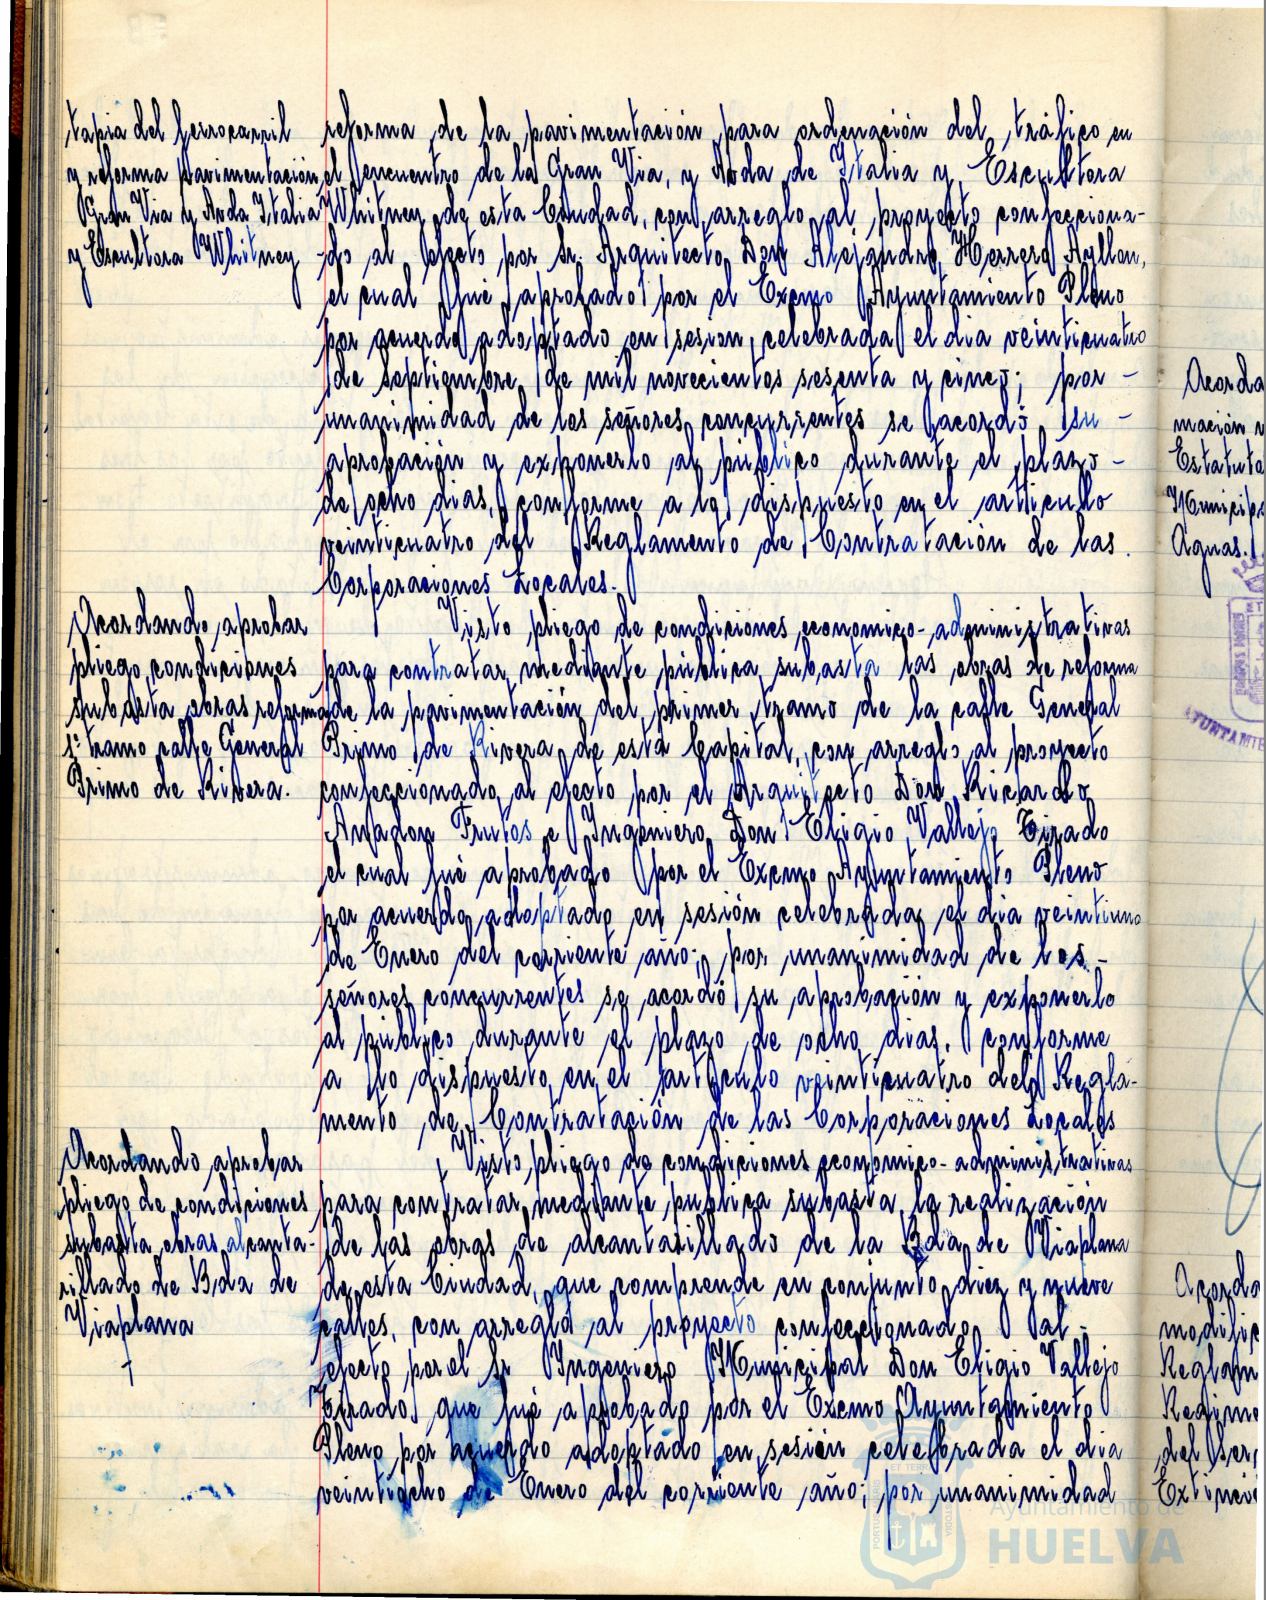 tapia del ferrocarril
y reforma pavimentación
Gran Via y Avda Italia
y Escultora Whitney
reforma de la pavimentación para ordenación del tráfico en
el encuentro de la Gran Via, y Avda de Italia y Escultora
Whitney de esta Ciudad, con arreglo al proyecto confecciona-
do al efecto por Sr. Arquitecto Don Alejandro Herrero Ayllon,
el cual fué aprobado por el Excmo Ayuntamiento Pleno
por acuerdo adoptado en sesion celebrada el dia veinticuatro
de Septiembre de mil novecientos sesenta y cinco; por -
unanimidad de los señores concurrentes se acordó su -
aprobación y exponerlo al público durante el plazo -
de ocho dias, conforme a lo dispuesto en el articulo
veinticuatro del Reglamento de Contratación de las
Corporaciones Locales.
Acordando aprobar
pliego condiciones
subasta obras reforma
1º tramo calle General
Primo de Rivera.
Visto pliego de condiciones economico-administrativas
para contratar mediante pública subasta las obras de reforma
de la pavimentación del primer tramo de la calle General
Primo de Rivera de esta Capital, con arreglo al proyecto
confeccionado al efecto por el Arquitecto Don Ricardo
Anadon Frutos e Ingeniero Don Eligio Vallejo Tirado
el cual fué aprobado por el Excmo Ayuntamiento Pleno
por acuerdo adoptado en sesión celebrada el dia veintiuno
de Enero del corriente año; por unanimidad de los -
señores concurrentes se acordó su aprobación y exponerlo
al público durante el plazo de ocho dias, conforme
a lo dispuesto en el articulo veinticuatro del Regla-
mento de Contratación de las Corporaciones Locales
Acordando aprobar
pliego de condiciones
subasta obras alcanta-
rillado de Bda de
Viaplana
Visto pliego de condiciones economico-administrativas
para contratar mediante publica subasta la realización
de las obras de alcantarillado de la Bda de Viaplana
de esta Ciudad, que comprende en conjunto diez y nueve
calles, con arreglo al proyecto confeccionado al -
efecto por el Sr Ingeniero Municipal Don Eligio Vallejo
Tirado que fué aprobado por el Excmo Ayuntamiento
Pleno por acuerdo adoptado en sesión celebrada el dia
veintiocho de Enero del corriente año; por unanimidad
Acorda
mación
Estatuto
Municip
Aguas.
AYUNTAMIE
Acorda
modific
Reglam
Regime
del Ser
Extinci
Ayuntamiento de
HUELVA